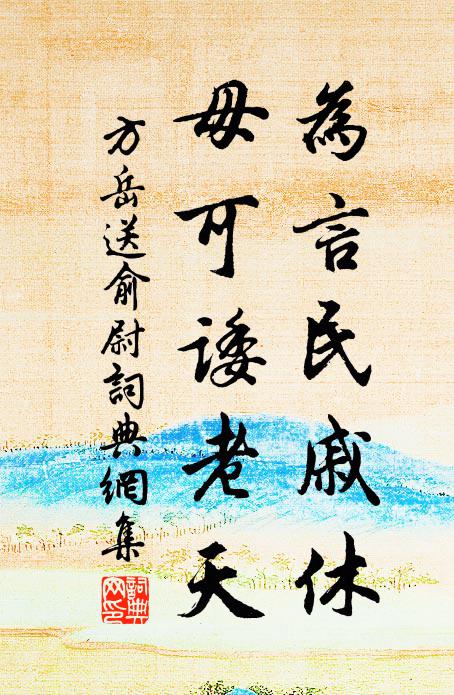 為言民戚休
毋可諉老天
方岳送俞尉詞典網集
詞典網印